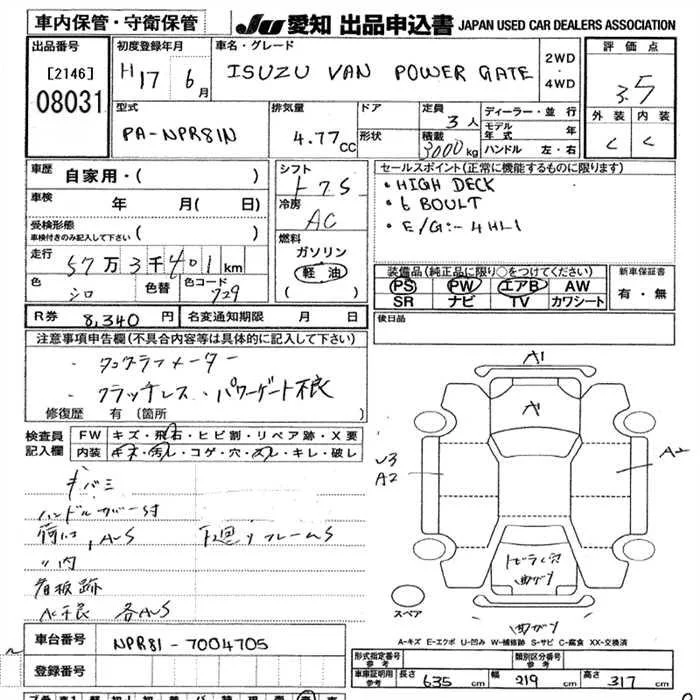 車内保管・守衛保管
JU 愛知 出品申込書 JAPAN USED CAR DEALERS ASSOCIATION
出品番号
[2146]
08031
初度登録年月
H17 6月
車名・グレード
ISUZU VAN POWER GATE
2WD
・
4WD
評価点
3.5
外装 内装
C C
型式
PA-NPR81N
排気量
4.77cc
ドア
形状
定員
3人
積載
3000kg
ディーラー・並行
モデル年式 年
ハンドル 左・右
車歴 自家用・( )
車検 年 月( 日)
受検形態
車検付きのみ記入して下さい ( )
走行 57万3千401km
色 シロ
色替
色コード 729
シフト
冷房
AC
燃料
ガソリン
軽油
( )
セールスポイント(正常に機能するものに限ります)
・HIGH DECK
・6 BOULT
・E/G:- 4HL1
装備品(純正品に限り○をつけてください)
PS PW エアB AW
SR ナビ TV カワシート
新車保証書
有・無
後日品
R券 8,340円
名変通知期限 月 日
注意事項申告欄(不具合内容等は具体的に記入して下さい)
・タコグラフメーター
・クラッチレス・パワーゲート不良
修復歴 有(箇所 )
検査員
記入欄
FW キズ・飛石・ヒビ割・リペア跡・X要
内装 キズ・汚レ・コゲ・穴・スレ・キレ・破レ
キバミ
ハンドルカバー付
荷口, AUS
下廻りフレームS
〃内
看板跡
AC不良 各AUS
A1
A
U3
A2
A2
スペア
A-キズ E-エクボ U-凹み W-補修跡 S-サビ C-腐食 XX-交換済
車台番号 NPR81-7004705
登録番号
形式指定番号
参考
類別区分番号
参考
車庫証明用
参考
長さ 635cm 幅 219cm 高さ 317cm